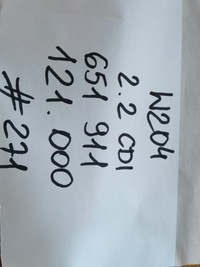 W204
2.2 CDI
651 911
121.000
# 271